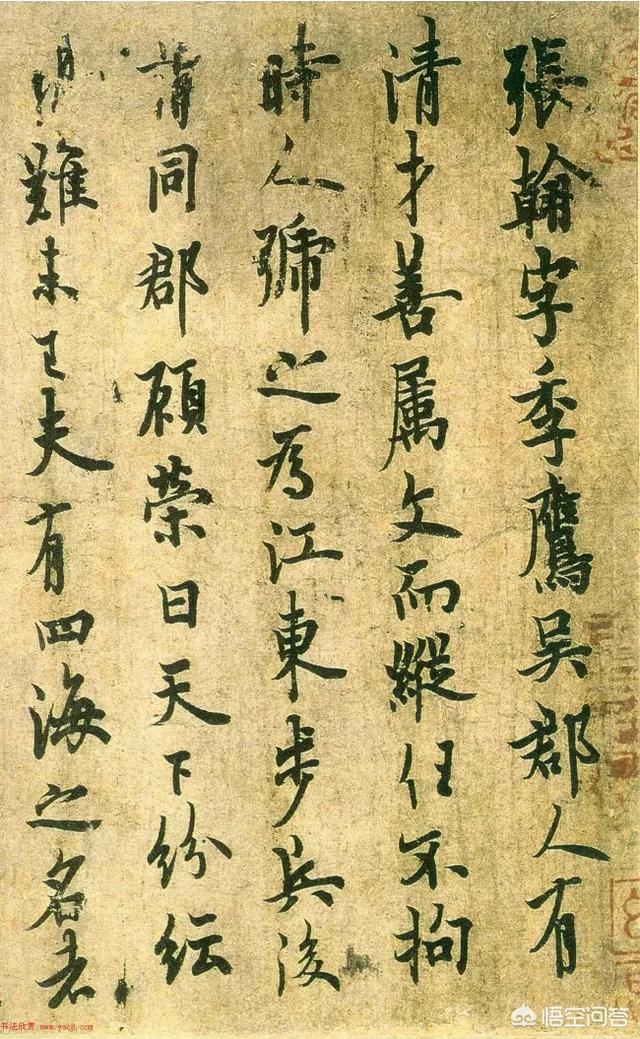 張翰字季鷹吳郡人有
清才善属文而縱任不拘
時人號之為江東步兵後
同郡顧榮曰天下紛紜
難未已夫有四海之名者
书法欣赏 www.yac8.com
悟空问答